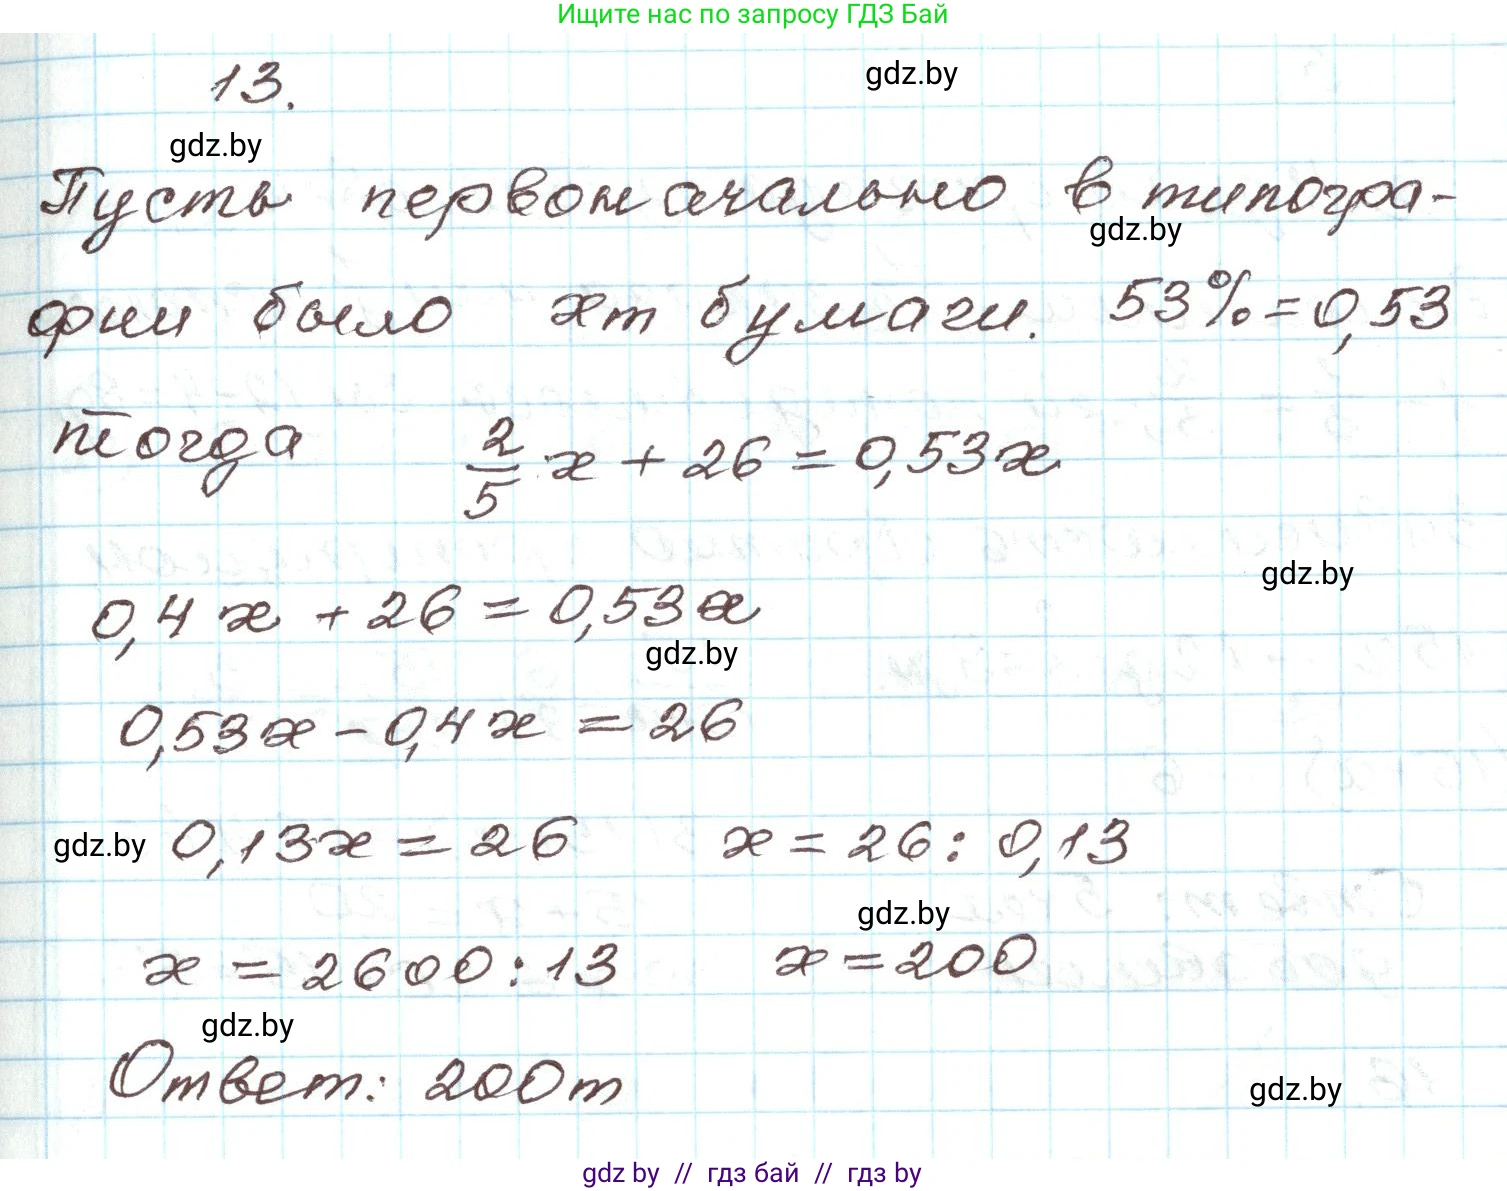 Ищите нас по запросу ГДЗ Бай
13.
gdz.by
gdz.by
Пусть первоначально в типогра-
gdz.by
фии было xт бумаги. 53% = 0,53
тогда 2/5 x + 26 = 0,53x
gdz.by
0,4x + 26 = 0,53x
gdz.by
0,53x - 0,4x = 26
gdz.by
0,13x = 26 x = 26 : 0,13
gdz.by
x = 2600 : 13 x = 200
gdz.by
Ответ: 200т
gdz.by
gdz by // гдз бай // гдз by